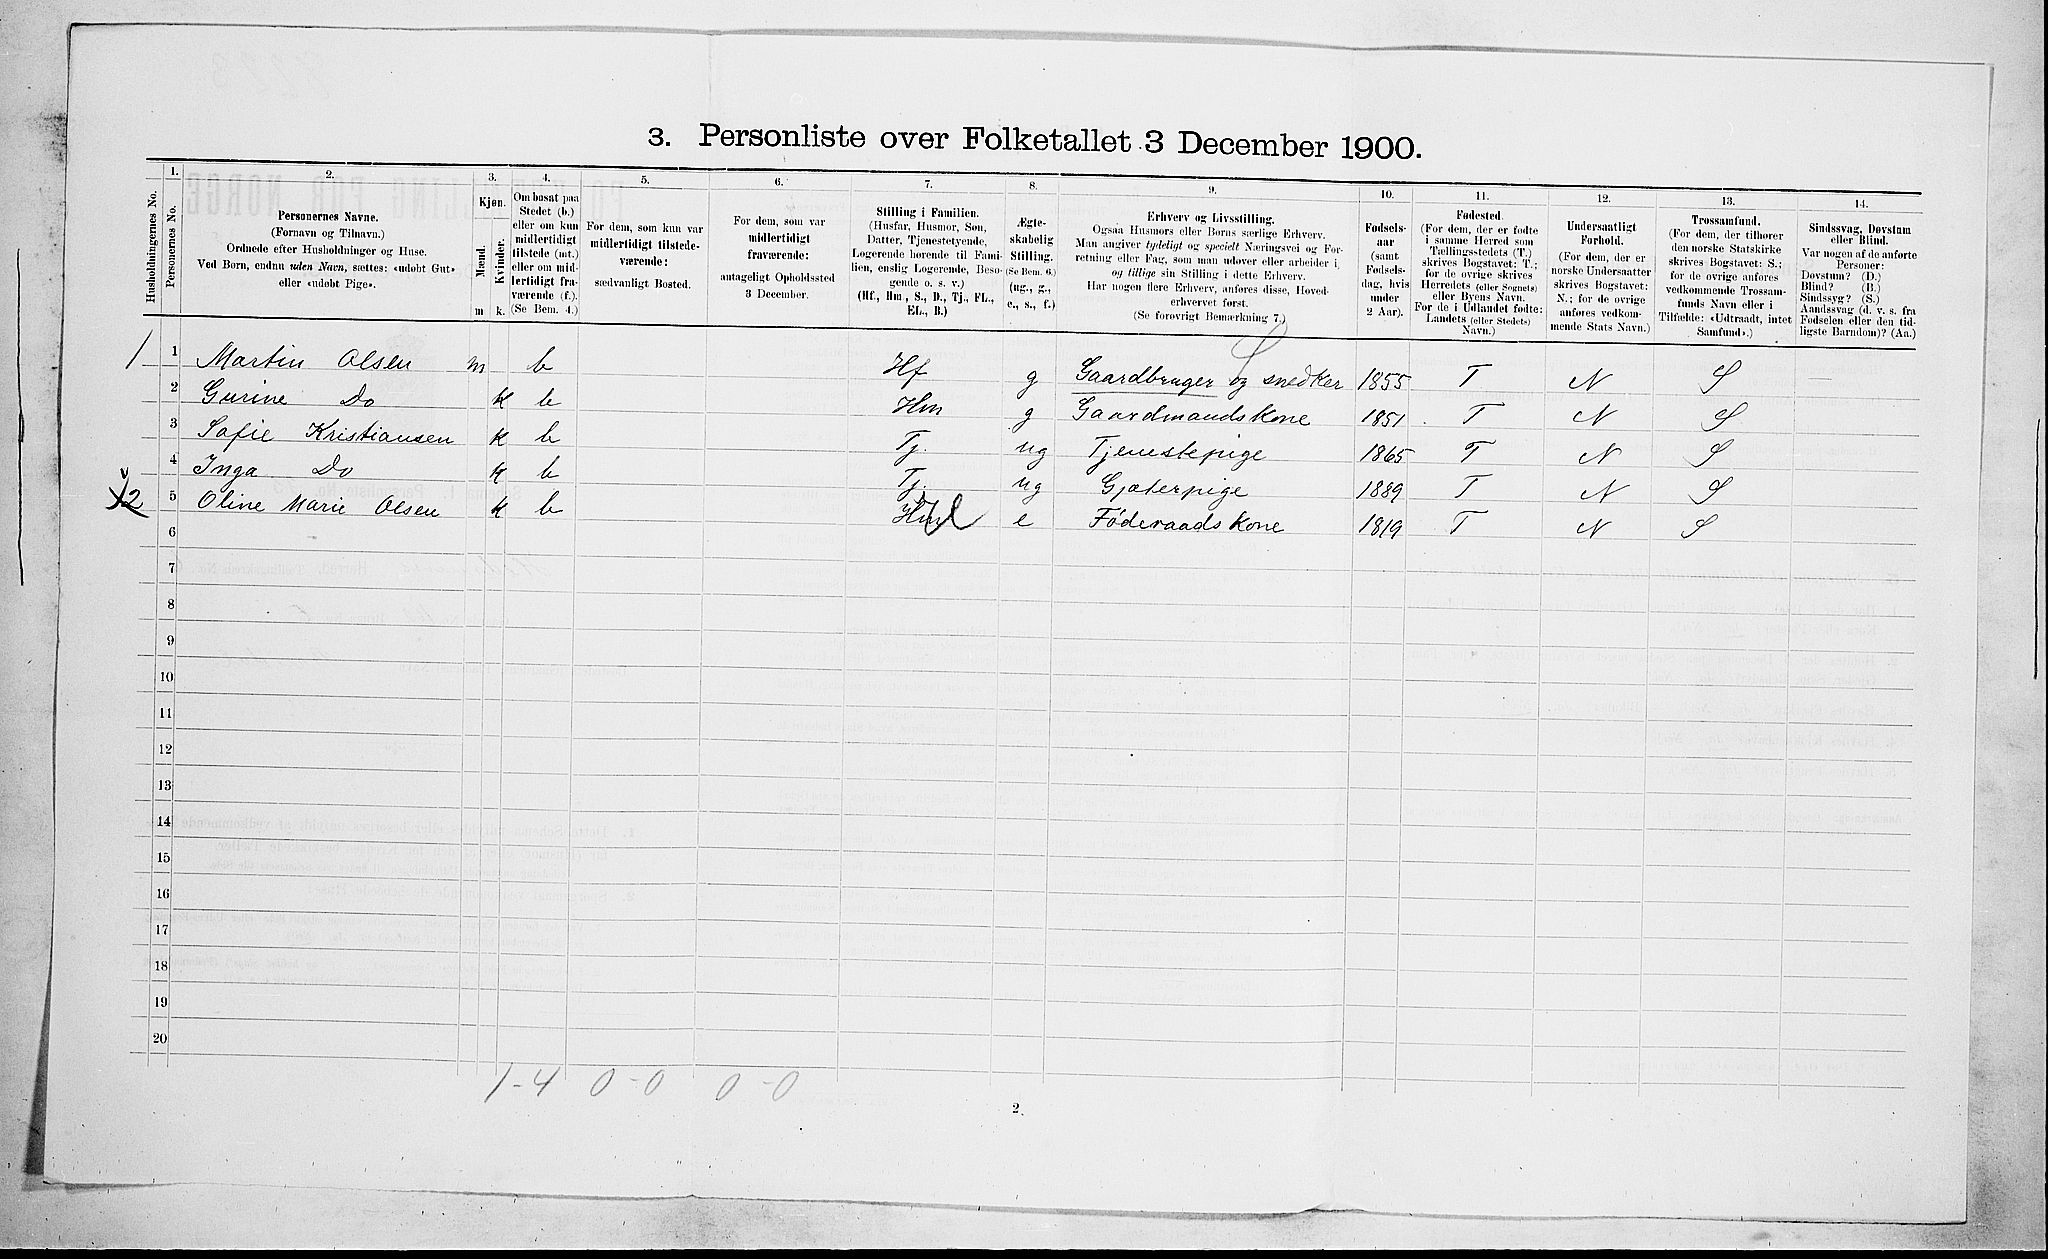 3. Personliste over Folketallet 3 December 1900.
1. 2. 3. 4. 5. 6. 7. 8. 9. 10. 11. 12. 13. 14.
Husholdningernes No.
Personernes No.
Personernes Navne.
(Fornavn og Tilnavn.)
Ordnede efter Husholdninger og Huse.
Ved Børn, endnu uden Navn, sættes: «udøbt Gut»
eller «udøbt Pige».
Kjøn.
Mænd.
Kvinder.
m k.
Om bosat paa
Stedet (b.)
eller om kun
midlertidigt
tilstede (mt.)
eller om mid-
lertidigt fra-
værende (f.).
(Se Bem. 4.)
For dem, som kun var
midlertidigt tilstede-
værende:
sædvanligt Bosted.
For dem, som var
midlertidigt
fraværende:
antageligt Opholdssted
3 December.
Stilling i Familien.
(Husfar, Husmor, Søn,
Datter, Tjenestetyende,
Logerende hørende til Fami-
lien, enslig Logerende, Besø-
gende o. s. v.)
(Hf., Hm., S., D., Tj., FL.,
EL., B.)
Ægte-
skabelig
Stilling.
(Se Bem. 6.)
(ug., g.,
e., s., f.)
Erhverv og Livsstilling.
Ogsaa Husmors eller Børns særlige Erhverv.
Man angiver tydeligt og specielt Næringsvei og For-
retning eller Fag, som man udøver eller arbeider i,
og tillige sin Stilling i dette Erhverv.
Har nogen flere Erhverv, anføres disse, Hoved-
erhvervet først.
(Se forøvrigt Bemærkning 7.)
Fødsels-
aar
(samt
Fødsels-
dag, hvis
under
2 Aar).
Fødested.
(For dem, der er fødte
i samme Herred som
Tællingsstedets (T.)
skrives Bogstavet: T.;
for de øvrige skrives
Herredets (eller Sognets)
eller Byens Navn.
For de i Udlandet fødte:
Landets (eller Stedets)
Navn.)
Undersaatligt
Forhold.
(For dem, der er
norske Undersaatter
skrives Bogstavet:
N.; for de øvrige
anføres vedkom-
mende Stats Navn.)
Trossamfund.
(For dem, der tilhører
den norske Statskirke
skrives Bogstavet: S.;
for de øvrige anføres
vedkommende Trossam-
funds Navn eller i
Tilfælde: «Udtraadt, intet
Samfund».)
Sindssvag, Døvstum
eller Blind.
Var nogen af de anførte
Personer:
Døvstum? (D.)
Blind? (B.)
Sindssyg? (S.)
Aandssvag (d. v. s. fra
Fødselen eller den tid-
ligste Barndom)? (Aa.)
1 1 Martin Olsen m b Hf g Gaardbruger og snedker 1855 T N S
2 Gurine Do k b Hm g Gaardmandskone 1851 T N S
3 Sofie Kristiansen k b Tj. ug Tjenestepige 1865 T N S
4 Inga Do k b Tj. ug Gjæterpige 1889 T N S
2 5 Oline Marie Olsen k b Hm e Føderaadskone 1819 T N S
6
7
8
9
10
11
12
13
14
15
16
17
18
19
20
1-4 0-0 0-0
2